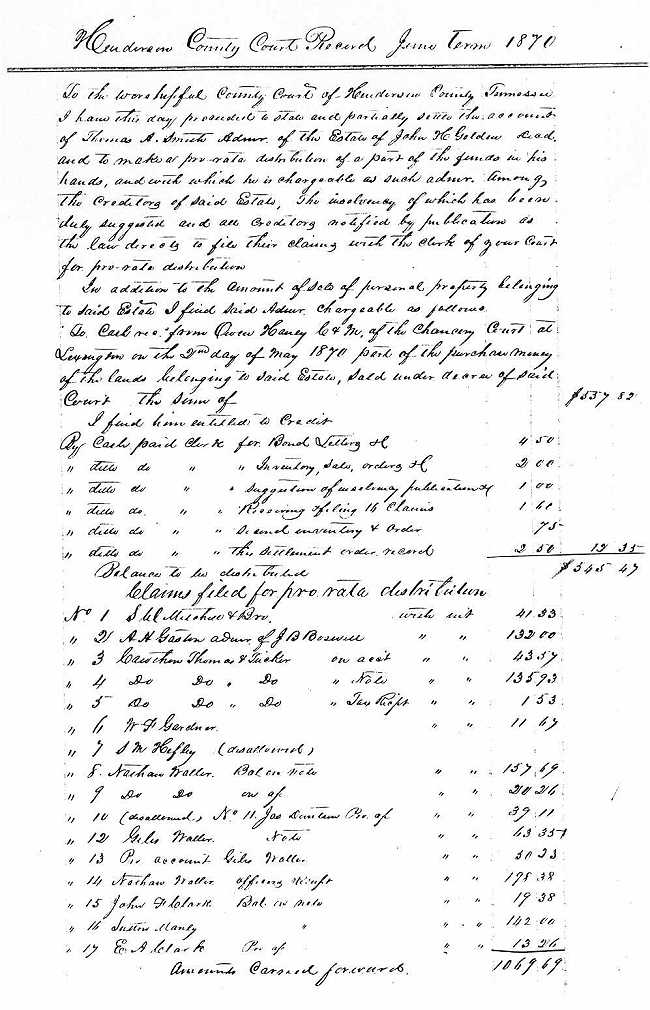 Henderson County Court Record June term 1870
To the worshipful County Court of Henderson County Tennessee
I have this day proceeded to state and partially settle the account
of Thomas A. Smith Admr. of the Estate of John H Golden decd.
and to make a pro-rata distribution of a part of the funds in his
hands, and with which he is chargeable as such admr. Among
the creditors of said Estate, The insolvency of which has been
duly suggested and all creditors notified by publication as
the law directs to file their claims with the Clerk of your Court
for pro-rata distribution
In addition to the amount of sale of personal property belonging
to said Estate I find said Admr. chargeable as follows
To Cash rec. from Owen Haney C & M. of the Chancery Court at
Lexington on the 2nd day of May 1870 part of the purchase money
of the lands belonging to said Estate, sold under decree of said
Court the sum of $557 82
I find him entitled to Credit
By Cash paid Clerk for Bond Letters &c 4 50
" ditto do " " Inventory, Sale, orders &c 2 00
" ditto do " " suggestion of insolvency publication &c 1 00
" ditto do. " " Receiving & filing 16 Claims 1 60
" ditto do " " second inventory & order 75
" ditto do " " this settlement order record 2 50 12 35
Balance to be distributed $545 47
Claims filed for pro rata distribution
No 1 & Bro. with int 41 33
" 2 A H Gaston admr of J B Boswell " " 132 00
" 3 Cawthon Thomas & Tucker on acct " " 43 57
" 4 Do Do " Do " Note " " 135 93
" 5 Do Do " Do " Tax Recpt " " 1 53
" 6 W F Gardner " " 11 67
" 7 S M (disallowed)
" 8 Waller. Bal on note " " 157 69
" 9 Do Do on ac " " 20 26
" 10 (disallowed) No 11. Jas Per ac " " 39 11
" 12 Giles Waller. Note " " 63 35
" 13 Per account Giles Waller " " 50 23
" 14 Waller officers " " 198 38
" 15 John F Clark Bal on note " " 19 38
" 16 Manly " " " 142 00
" 17 E A Clark Per ac " " 13 26
Amounts Carried forward. 1069 69